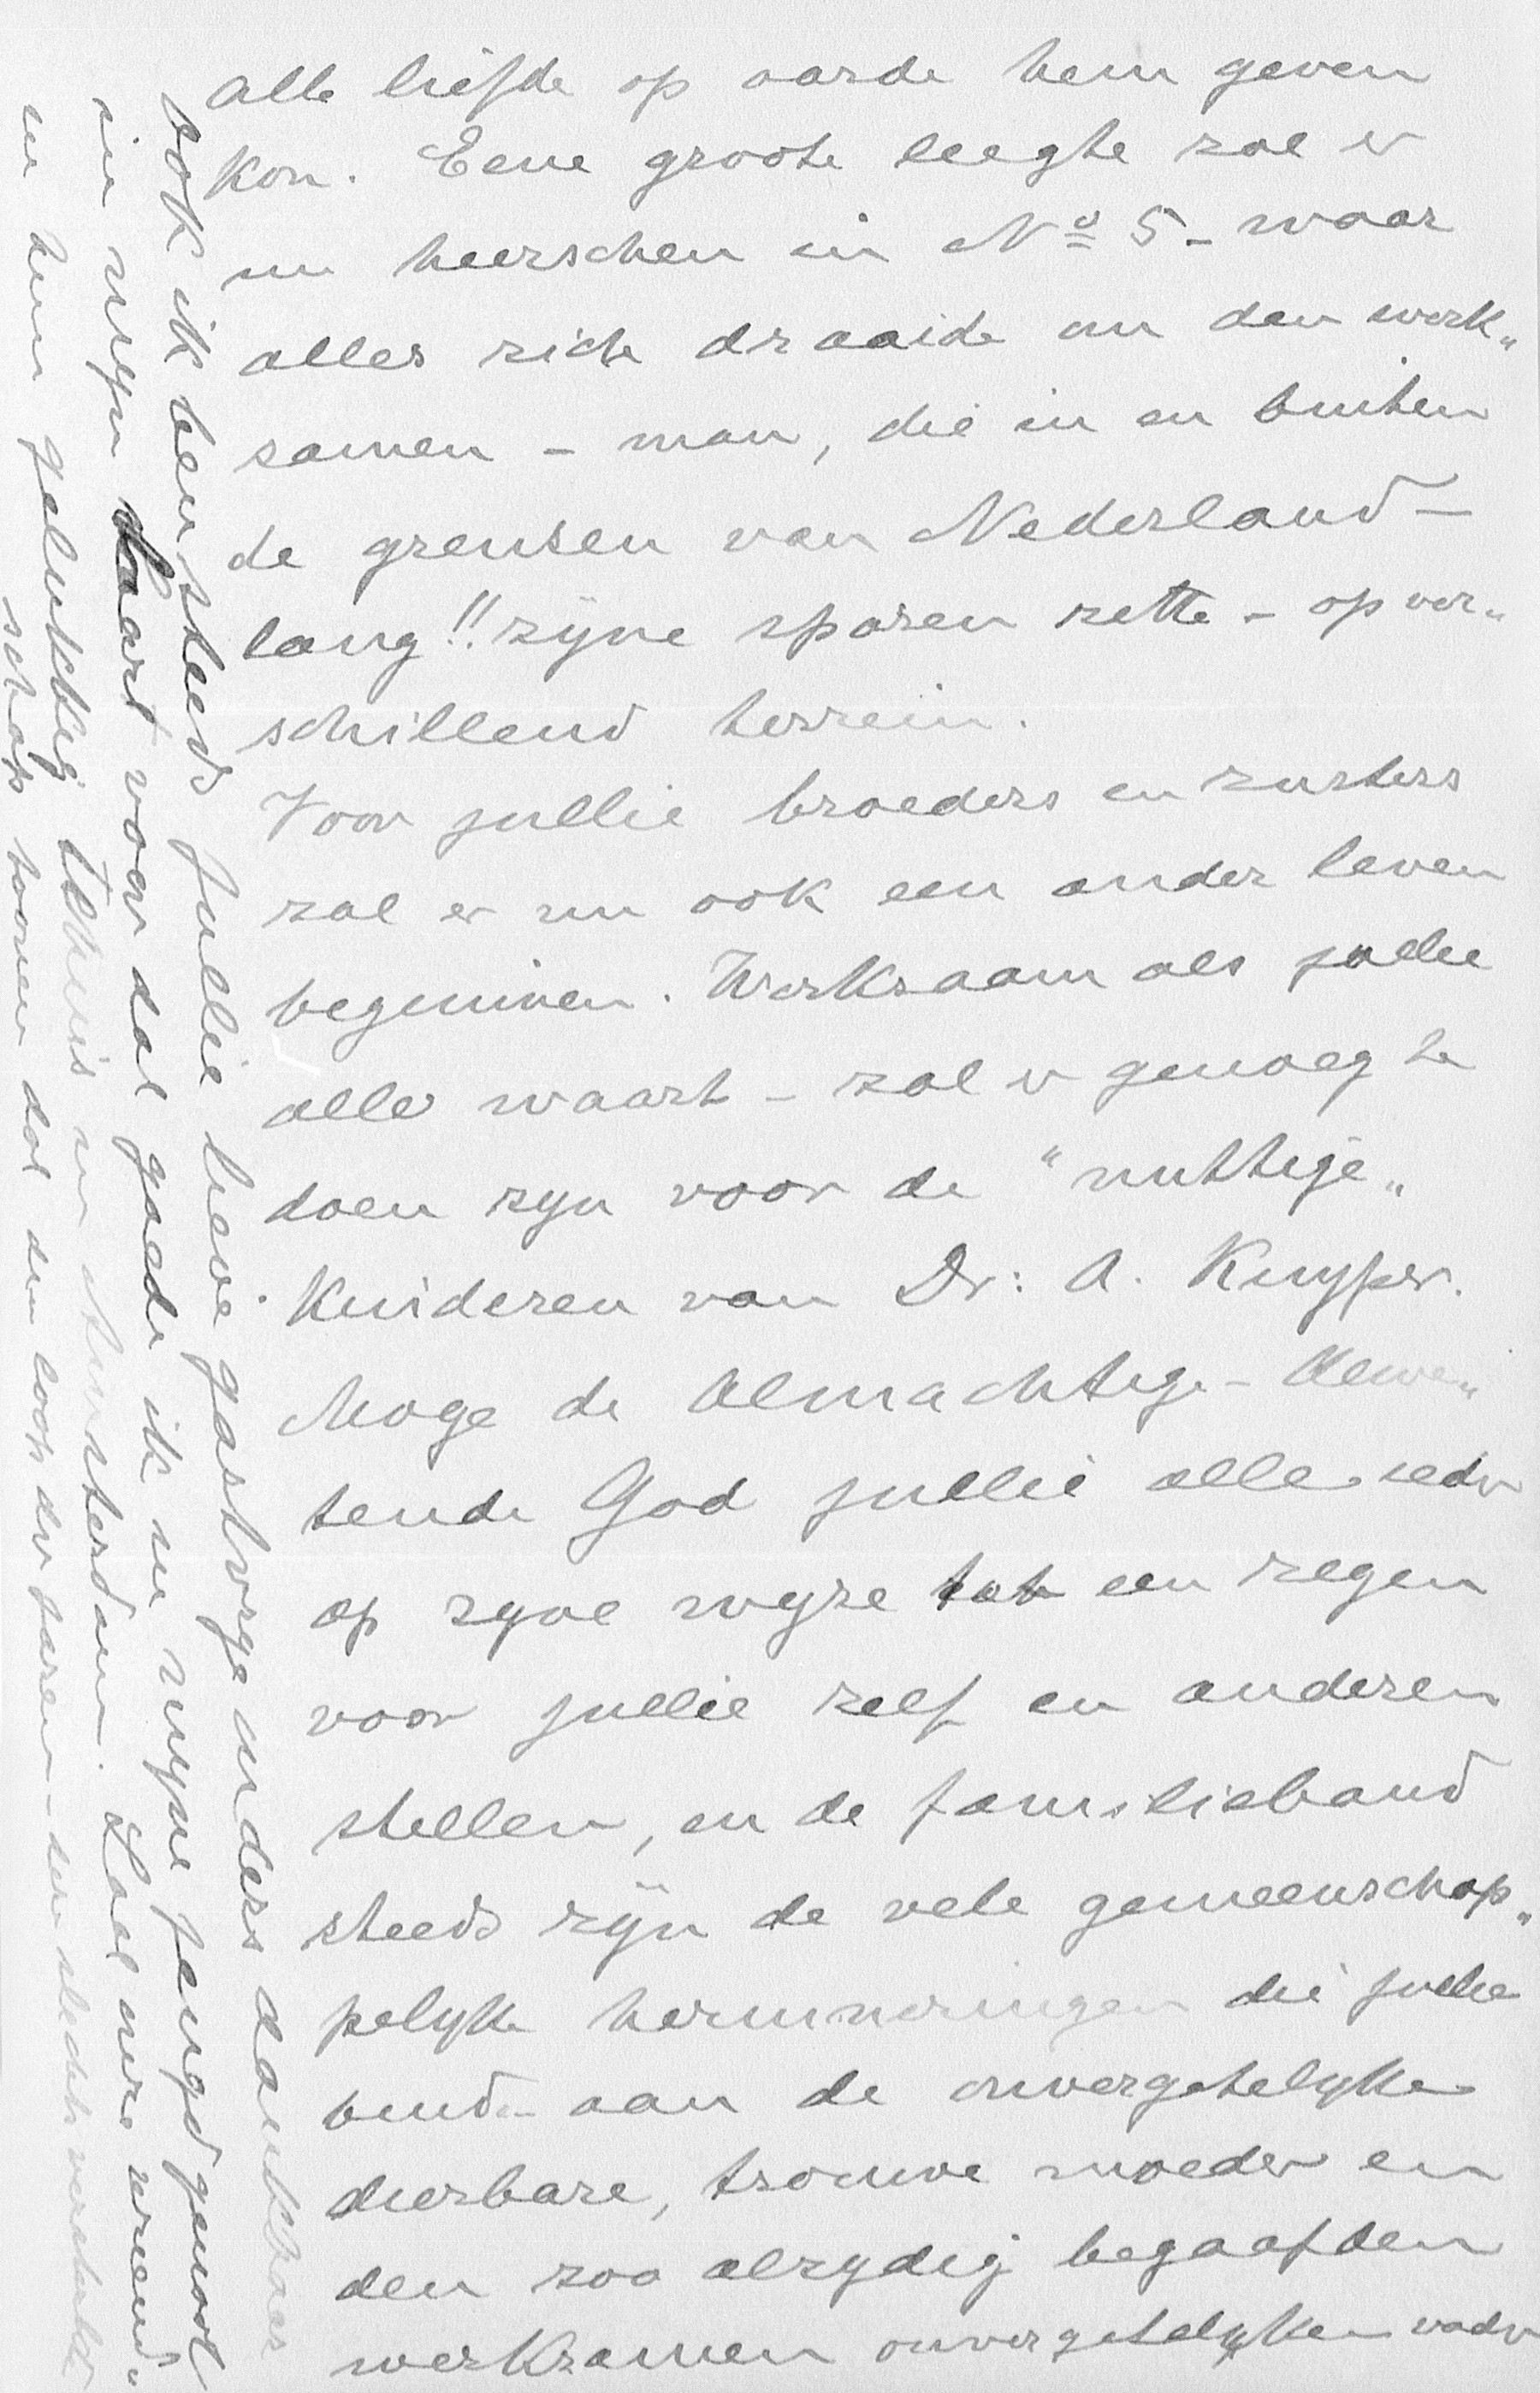 alle liefde op aarde hem geven
kon. Eene groote leegte zal er
nu heerschen in No 5 - waar
alles zich draaide om den werk„
zamen - man, die in en buiten
de grenzen van Nederland -
lang!! zijne sporen zette - op ver„
schillend terrein.
Voor jullie broeders en zusters
zal er nu ook een ander leven
beginnen. Werkzaam als jullie
alle waart - zal er genoeg te
doen zyn voor de "nuttige„
Kinderen van Dr: A. Kuyper.
Moge de Almachtige - Alwe„
tende God jullie alle ieder
op zyne wyze tot een zegen
voor jullie zelf en anderen
stellen, en de familieband
steeds zijn de vele gemeenschap„
pelyke herinneringen die jullie
bind- aan de onvergetelyke
dierbare, trouwe moeder en
den zoo alzydig begaafden
werkzamen onvergetelyken vader
ook ik ben steeds jullie lieve gastvrye ouders dankbaar
in myn hart voor dat goede ik in myne jeugd genoot
in hun gelukkig Tehuis in Amsterdam. Laat ure vriend„
schap toonen dat den loop der jaren - den slechts versterkte